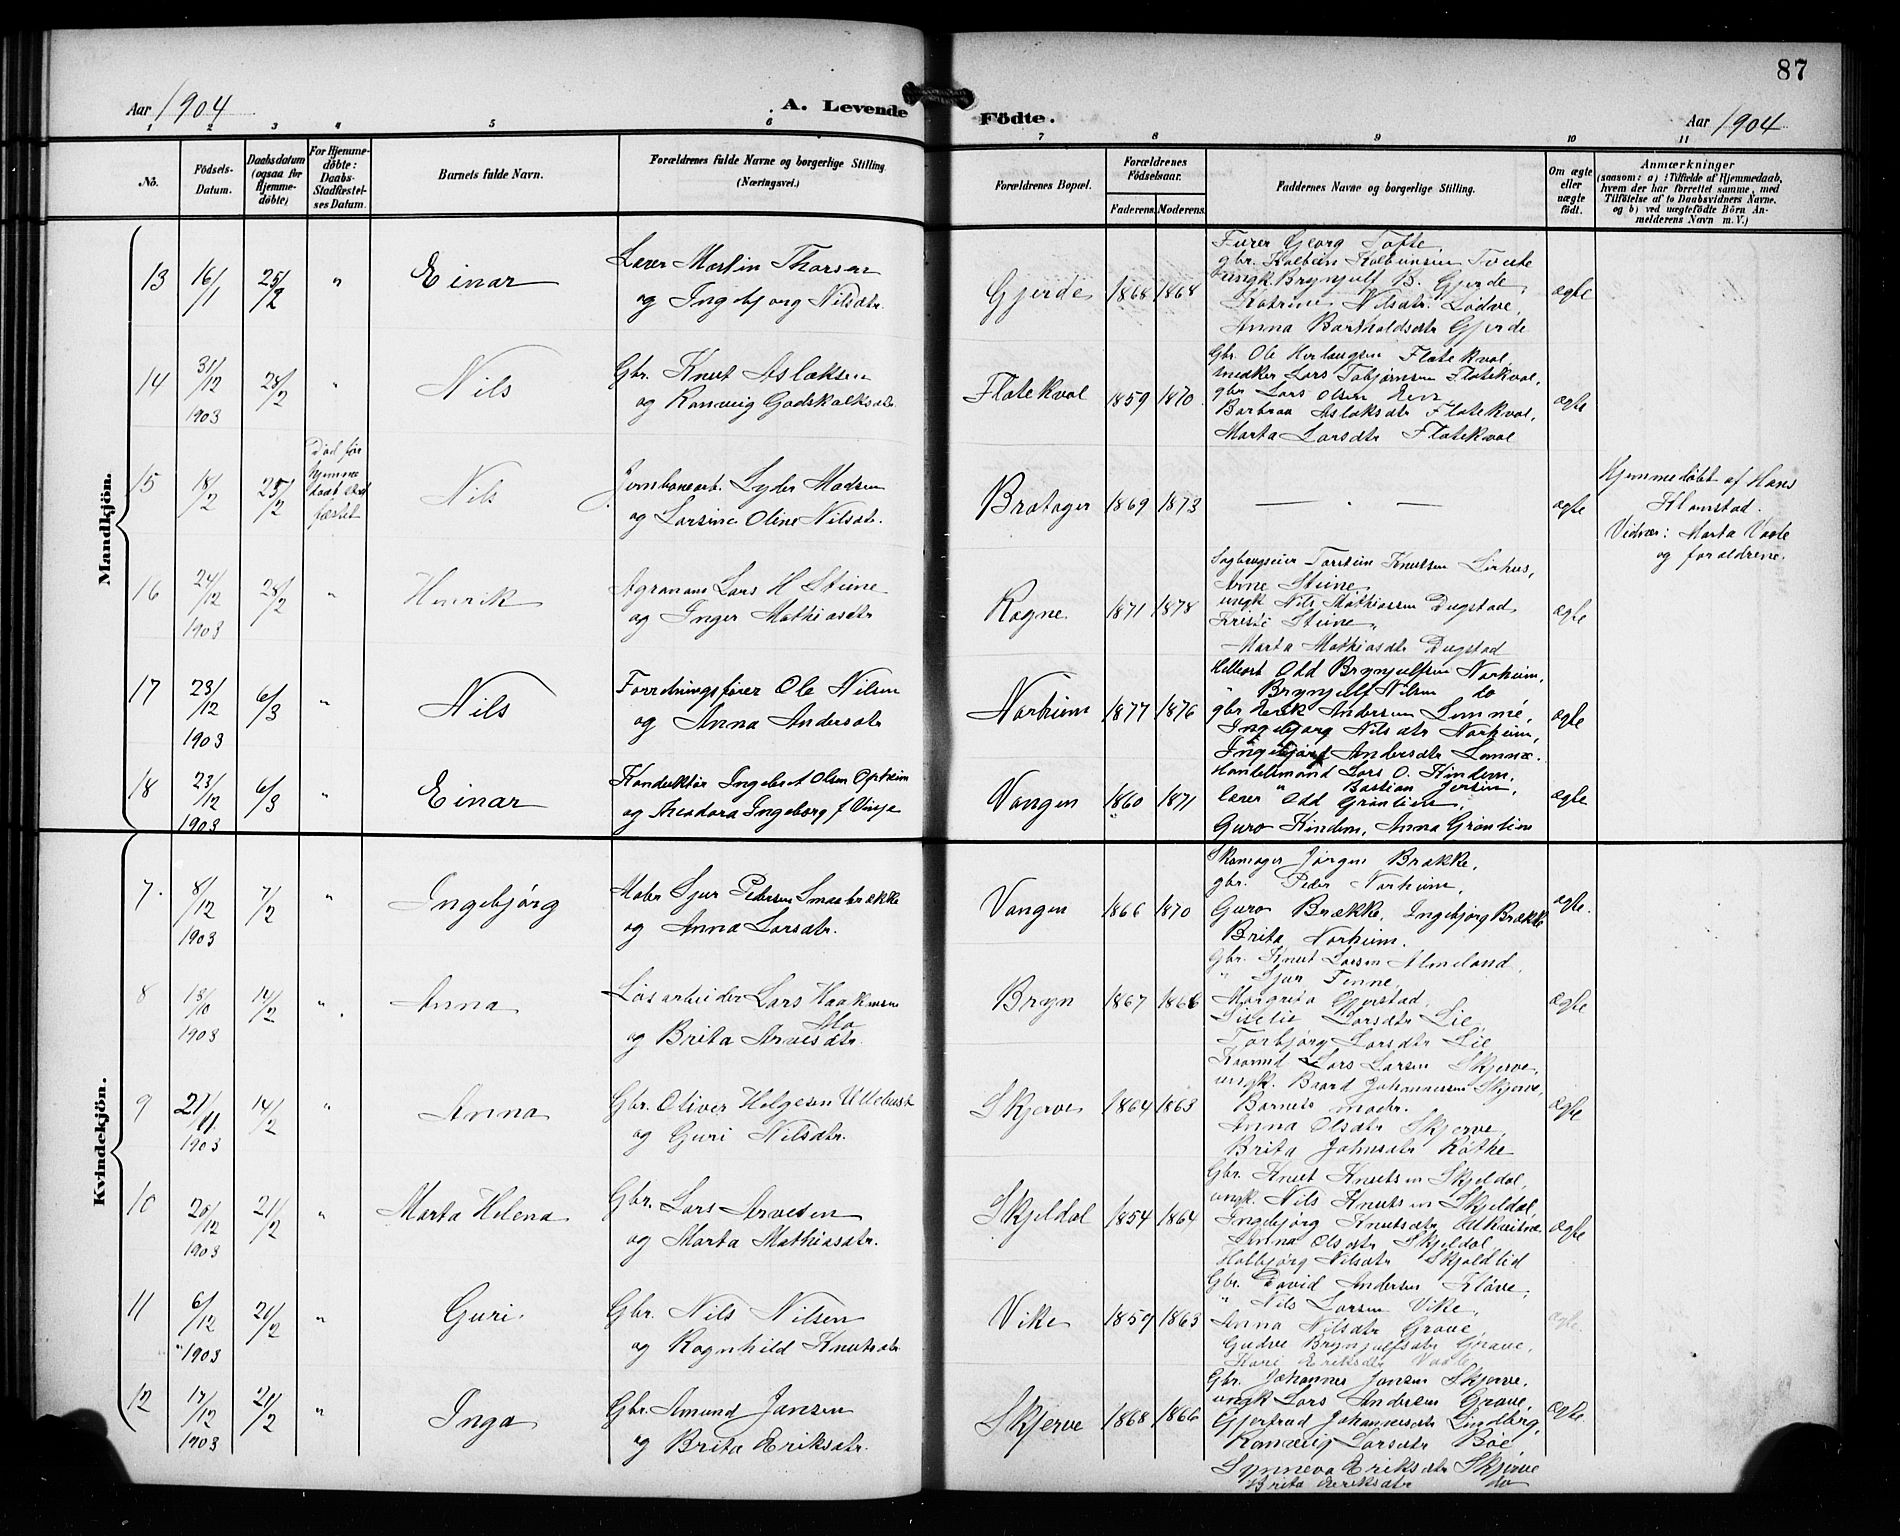 87
Aar 1904
A. Levende Födte.
Aar 1904
1 2 3 4 5 6 7 8 9 10 11
No.
Födsels-Datum.
Daabsdatum (ogsaa for Hjemme-döbte)
For Hjemme-döbte: Daabs-Stadfæstel-ses Datum.
Barnets fulde Navn.
Forældrenes fulde Navne og borgerlige Stilling. (Næringsvei.)
Forældrenes Bopæl.
Forældrenes Födselsaar.
Faderens. Moderens.
Faddernes Navne og borgerlige Stilling.
Om ægte eller uægte födt.
Anmærkninger
(saasom: a) i Tilfælde af Hjemmedaab, hvem der har forrettet samme, med Tilföielse af to Daabsvidners Navne, og b) ved uægtefödte Börn An-melderens Navn m. V.)
Mandkjön.
13 16/1 25/2 " Einar
Lærer Martin Thorsen
og Ingebjorg Nilsdtr.
Gjerde 1868 1868
Furer Georg Tofte
gbr. Kolbein Kolbeinsen
ungk. Brynjulf B. Gjerde,
Katrine Nilsdtr. Lødve,
Anna Bartholdsdtr Gjerde
ægte
14 31/12 1903 28/2 " Nils
Gbr. Knut Aslaksen
og Ranveig Godskalksdtr.
Flatekval 1859 1870
Gbr. Ole Herlaugsen Flatekval,
snedker Lars Flatekval,
gbr. Lars Olsen
Barbraa Aslaksdtr Flatekval,
Marta Larsdtr Flatekval
ægte
15 18/2 25/2 Død før hjemme daab stad fæstet
Nils
Jernbanearb. Lyder Madsen
og Larsine Oline Nilsdtr.
Bratager 1869 1873
— " —
ægte
Hjemmedøbt af Hans
Hamstad.
Vidner: Marta
og forældrene.
16 24/12 1903 28/2 " Henrik
Agronom Lars H Steine
og Inger Mathiasdtr
Rogne 1871 1878
Sagbrugseier Torstein Knutsen Lirhus,
Arne Steine,
ungk Nils Mathiassen Dugstad
Kristi Steine,
Marta Mathiasdtr Dugstad
ægte
17 23/12 1903 6/3 " Nils
Forretningsfører Ole Nilsen
og Anna Andersdtr
Norheim 1877 1876
Odd Brynjulfsen Norheim,
" Brynjulf Nilsen do
gbr Erik Andersen Lemme,
Ingebjorg Nilsdtr Norheim,
Ingebjørg Andersdtr Lemme.
ægte
18 23/12 1903 6/3 " Einar
Konduktør Ingebret Olsen Opheim
og Theodora Ingeborg f Vinje
Vangen 1860 1871
Handelsmand Lars O. Kindem,
" Bastian Jersin,
lærer Odd Grønlien,
Guro Kindem, Anna Grønlien
ægte
Kvindekjön.
7. 8/12 1903 7/2 " Ingebjørg
Maler Sjur Pedersen Smaabrække
og Anna Larsdtr.
Vangen 1866 1870
Skomager Jørgen Brække,
gbr. Peder Norheim,
Guro Brække, Ingebjørg Brække
Brita Norheim.
ægte.
8 13/10 1903 14/2 " Anna
Løsarbeider Lars Haakonsen
Mo
og Brita Arvesdtr.
Bryn 1867 1866
Gbr. Knut Larsen Almeland,
" Sjur Finne,
Margreta Gjerstad,
Siselie Larsdtr Lie
Torbjørg Larsdtr Lie
ægte
9 21/11 1903 14/2 " Anna
Gbr. Oliver Helgesen Ullebust
og Guri Nilsdtr.
Skjerve 1864 1863
Kaarmd Lars Larsen Skjerve,
ungk. Baard Johannessen Skjerve,
Barnets moder.
Anna Olsdtr Skjerve,
Brita Johnsdtr Røthe
ægte
10 20/12 1903 21/2 " Marta Helena
Gbr. Lars Arvesen
og Marta Mathiasdtr.
Skjeldal 1854 1864
Gbr. Knut Knutsen Skjeldal,
ungk. Nils Knutsen Skjeldal,
Ingebjørg Knutsdtr
Anna Olsdtr Skjeldal
Holbjørg Nilsdtr Skjeldlid
ægte
11 6/12 1903 21/2 " Guri
Gbr. Nils Nilsen
og Ragnhild Knutsdtr
Vike 1859 1863
Gbr. David Andersen Kløve,
" Nils Larsen Vike,
Anna Nilsdtr Grove
Gudve Brynjulfsdtr Grove,
Kari Eriksdtr
ægte
12 17/12 1903 21/2 " Inga
Gbr. Amund Jansen
og Brita Eriksdtr.
Skjerve 1868 1866
Gbr. Johannes Jansen Skjerve,
ungk Lars Andersen Grove,
Gjertrud Johannesdtr Lindberg,
Ranveig Larsdtr Bøe,
Synneva Eriksdtr Skjerve
Brita Eriksdtr do
ægte